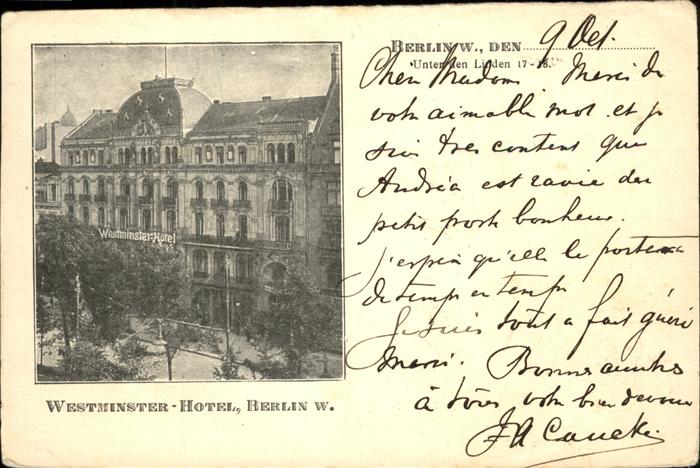 Westminster-Hotel
WESTMINSTER-HOTEL, BERLIN W.
BERLIN W., DEN 9 Oct.
Unter den Linden 17-18.
Chère Madame, Merci de
votre aimable mot et je
suis très content que
Andréa est ravie du
petit porte bonheur.
J'espère qu'elle le portera
de temps en temps
Je suis tout a fait guéri
Merci. Bonnes
à votre bien devoué